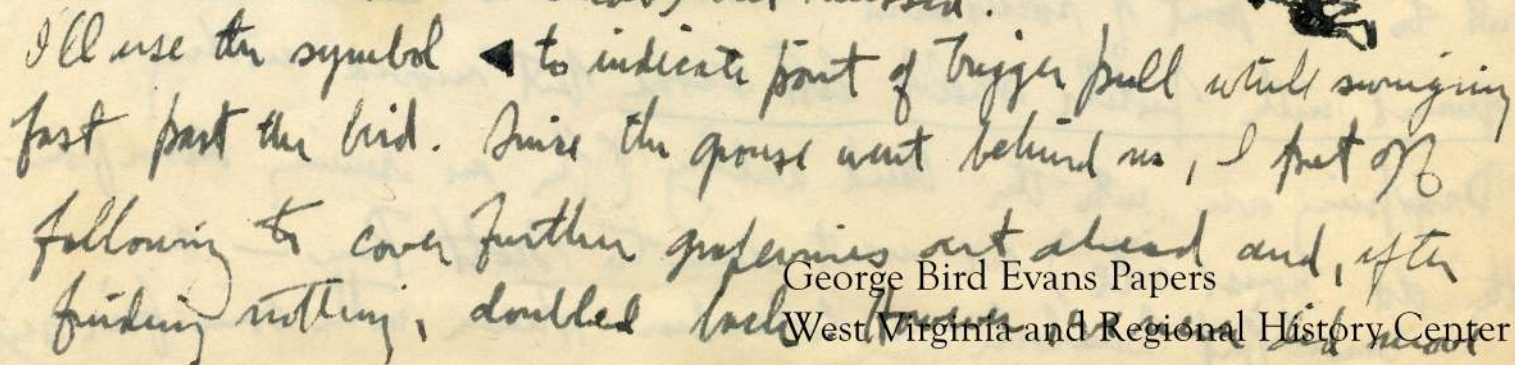 I'll use the symbol ◀ to indicate point of trigger pull while swinging
fast past the bird. Since the grouse went behind us, I put off
following to cover further grapevines out ahead and, after
finding nothing, doubled back. However, we did
George Bird Evans Papers
West Virginia and Regional History Center